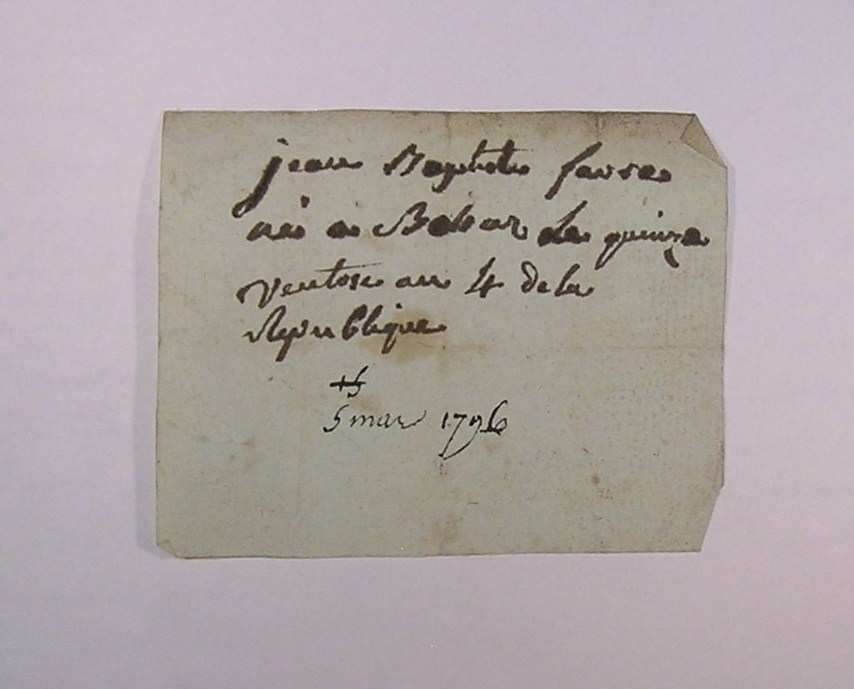 jean Baptiste favre
né a Bebar le quinze
Ventose an 4 de la
Republique
5 mars 1796